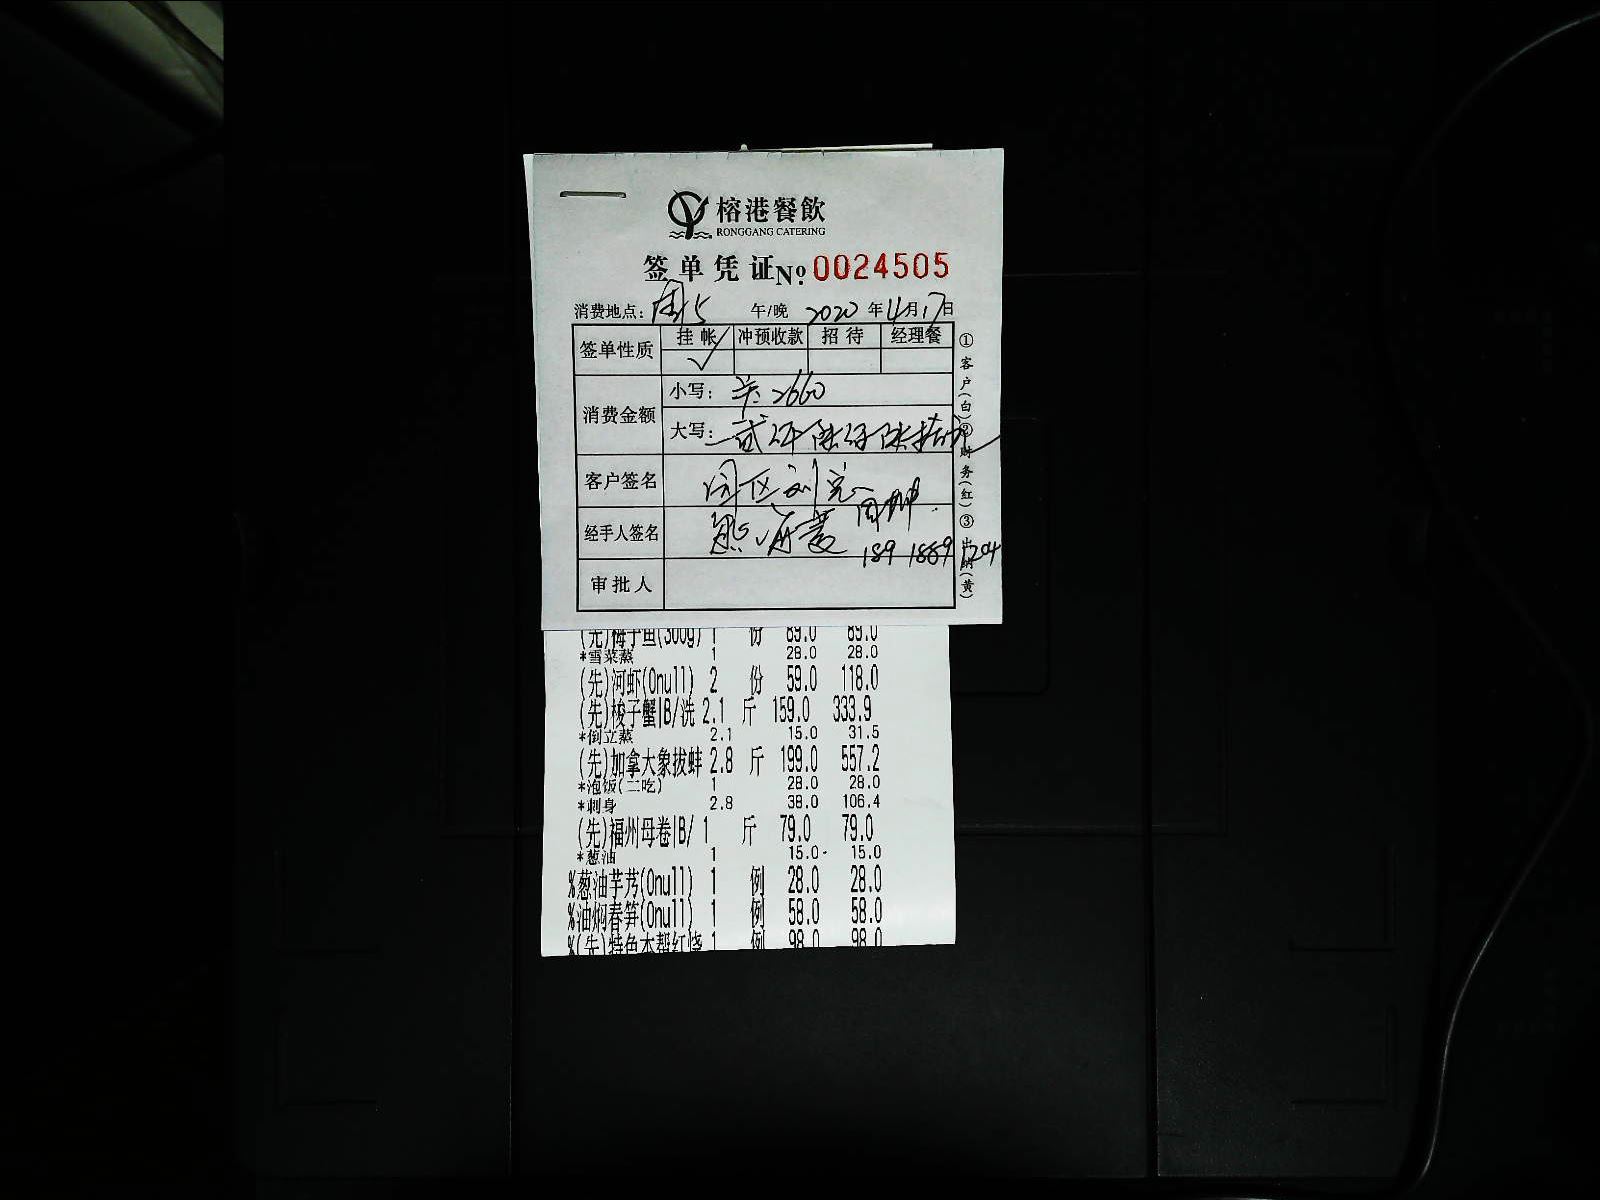 榕港餐飲
RONGGANG CATERING
签单凭证 No. 0024505
消费地点： 午/晚 2020 年 4 月 17 日
签单性质 挂帐 冲预收款 招待 经理餐
✓
消费金额 小写： 2660
大写： 贰仟陆佰陆拾元
客户签名 园区刘总
周坤
经手人签名
189 1889 1204
审批人
①客户(白)②财务(红)③出纳(黄)
(先)梅子鱼(300g) 1 份 89.0 89.0
*雪菜蒸 1 28.0 28.0
(先)河虾(0null) 2 份 59.0 118.0
(先)梭子蟹|B/洗 2.1 斤 159.0 333.9
*倒立蒸 2.1 15.0 31.5
(先)加拿大象拔蚌 2.8 斤 199.0 557.2
*泡饭(二吃) 1 28.0 28.0
*刺身 2.8 38.0 106.4
(先)福州母卷|B/ 1 斤 79.0 79.0
*葱油 1 15.0 15.0
%葱油芋艿(0null) 1 例 28.0 28.0
%油焖春笋(0null) 1 例 58.0 58.0
%(先)特色本帮红烧 1 例 98.0 98.0